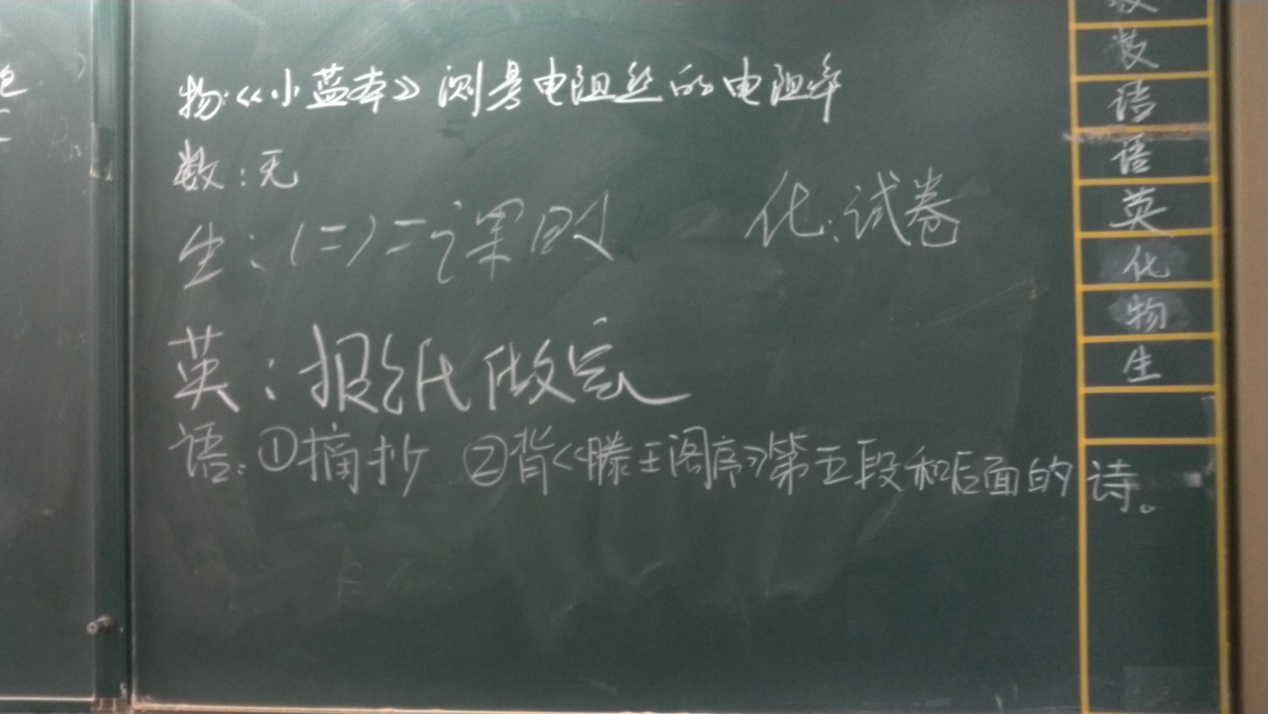 物:《小蓝本》测量电阻丝的电阻率
数:无
生:(二)二课时
化:试卷
英:报纸做完
语:①摘抄 ②背《滕王阁序》第五段和后面的诗。
数
语
语
英
化
物
生